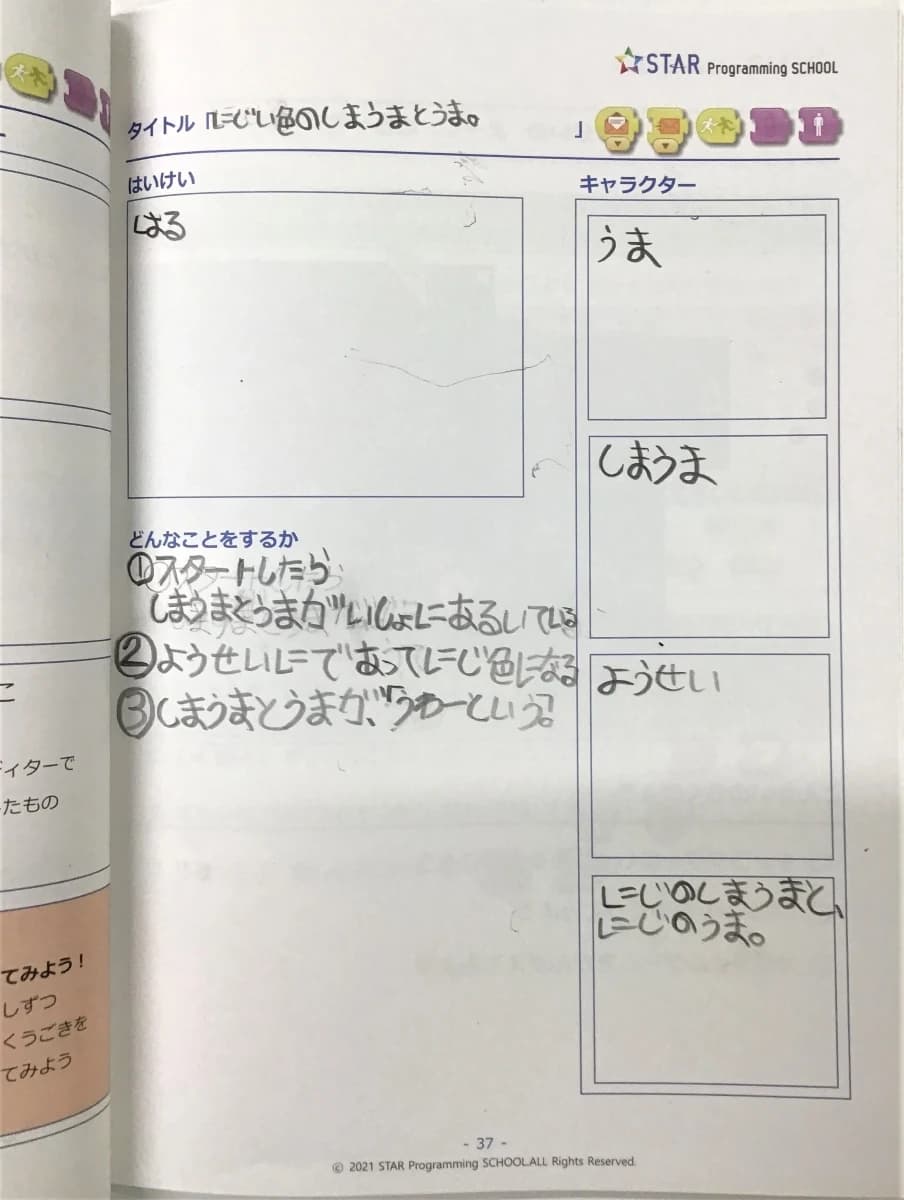 STAR Programming SCHOOL
タイトル「にじい色のしまうまとうま。」
はいけい
はる
キャラクター
うま
しまうま
ようせい
にじのしまうまと、
にじのうま。
どんなことをするか
①スタートしたら
しまうまとうまが いしょにあるいている
②ようせいにであってにじ色になる
③しまうまとうまが、「うわーという。」
こ
ィターで
たもの
てみよう!
しずつ
くうごきを
てみよう
- 37 -
© 2021 STAR Programming SCHOOL.ALL Rights Reserved.